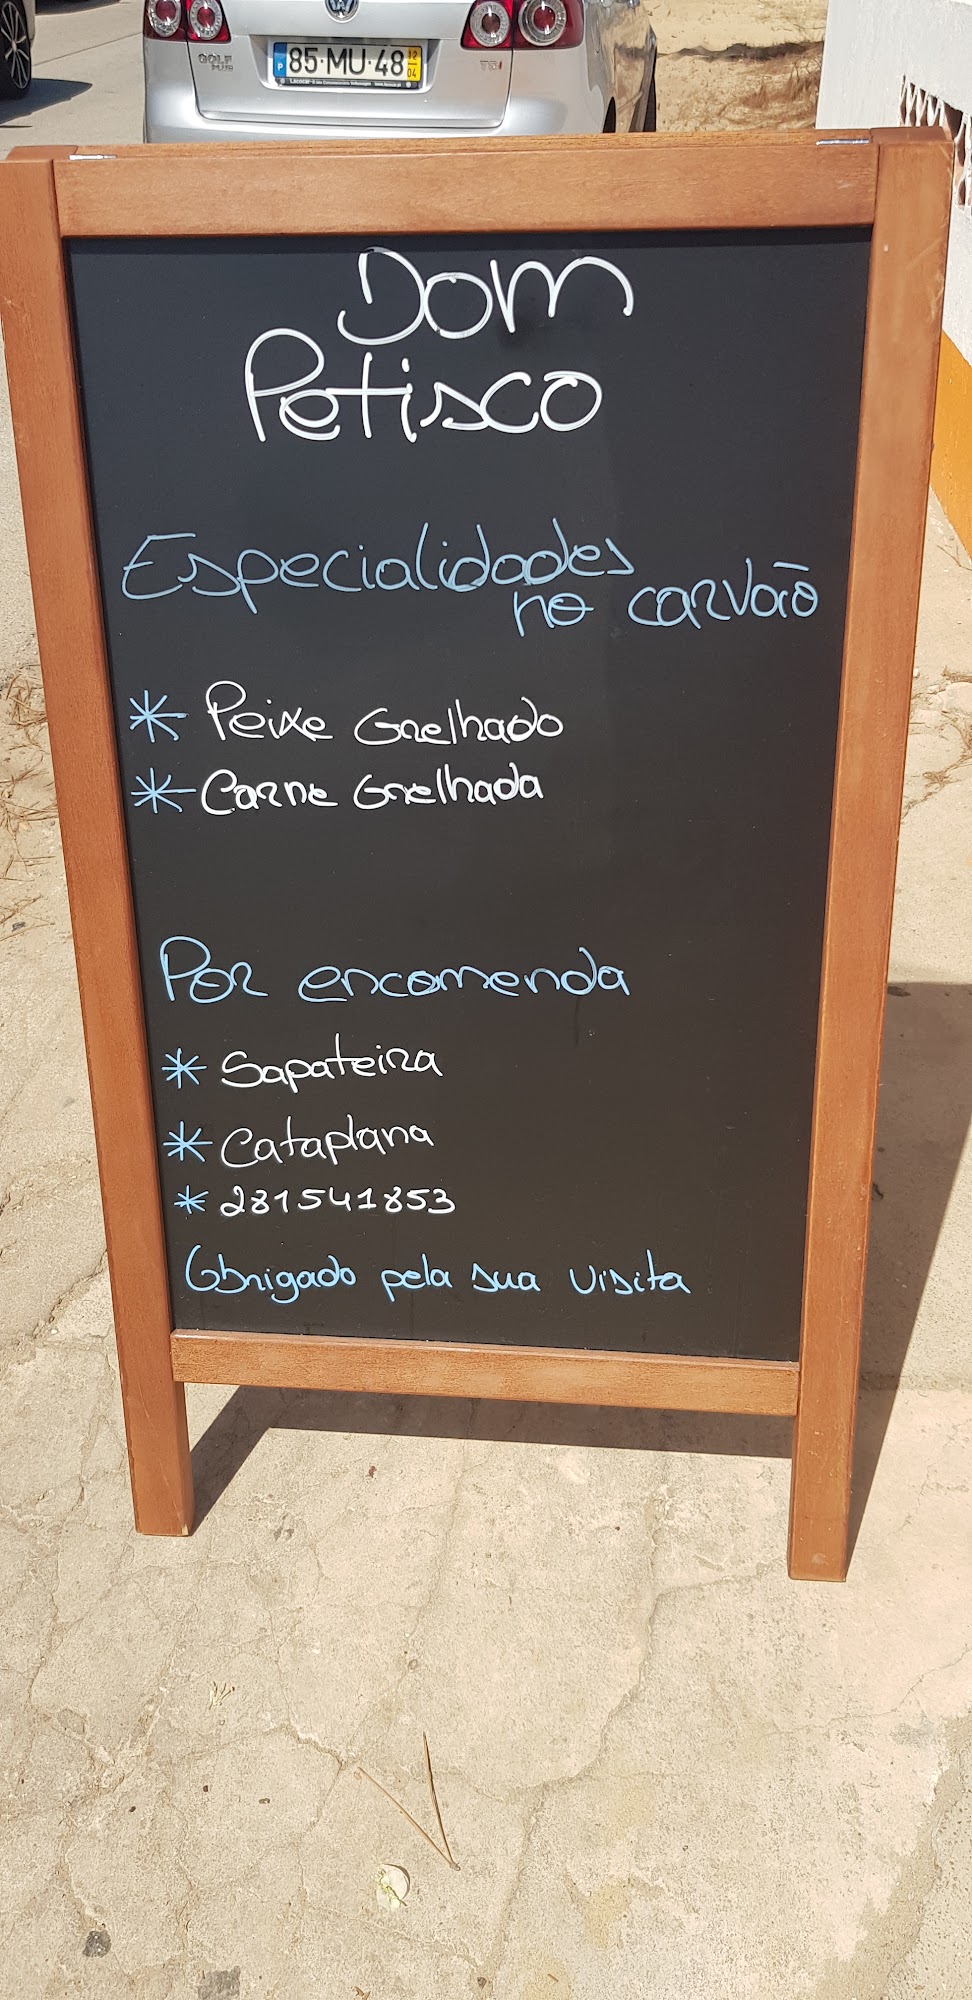 GOLF
PLUS
P 85·MU·48 12
04
TSI
Dom
Petisco
Especialidades
no carvão
* Peixe Grelhado
* Carne Grelhada
Por encomenda
* Sapateira
* Cataplana
* 281541853
Obrigado pela sua visita